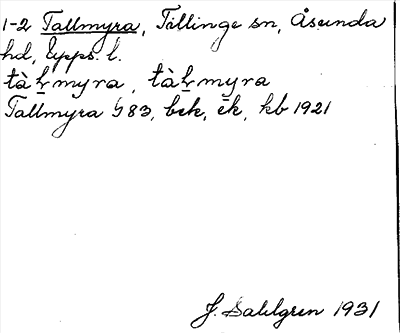 1-2 Tallmyra, Tillinge sn, Åsunda
hd, Upps. l.
tàḻmyra, tàḻmyra
Tallmyra G 83, bek, ēk, kb 1921
J. Sahlgren 1931